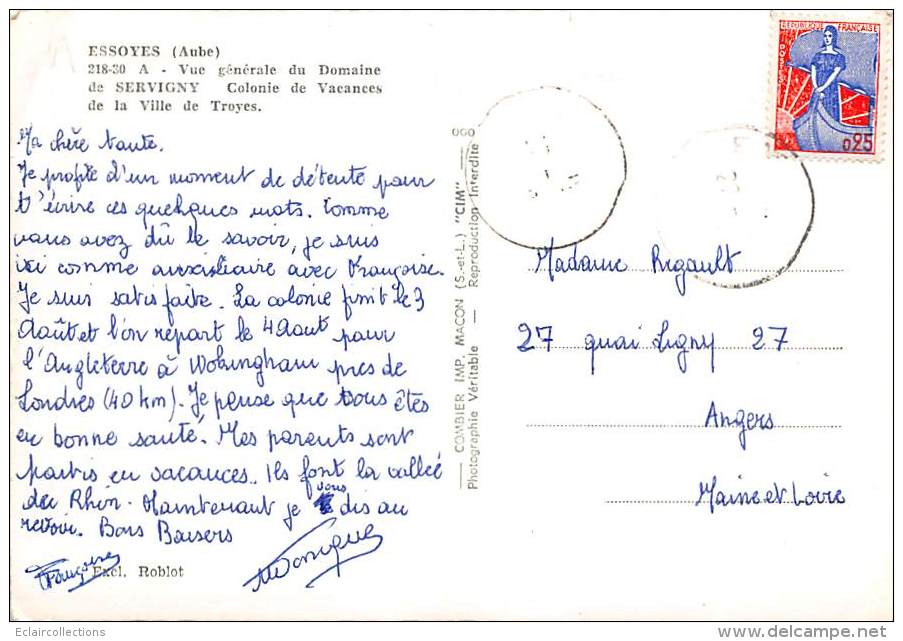 ESSOYES (Aube)
218-30 A - Vue générale du Domaine
de SERVIGNY Colonie de Vacances
de la Ville de Troyes.
Ma chère tante.
Je profite d'un moment de détente pour
t'écrire ces quelques mots. Comme
vous avez dû le savoir, je suis
ici comme auxiliaire avec Françoise.
Je suis satisfaite. La colonie finit le 3
Août et l'on repart le 4 Aout pour
l'Angleterre à Wokingham pres de
Londres (40 km). Je pense que vous êtes
en bonne santé. Mes parents sont
partis en vacances. Ils font la vallée
du Rhin. Maintenant je vous dis au
revoir. Bons Baisers
Françoise Monique
Excl. Roblot
COMBIER IMP. MACON (S.-et-L.) "CIM"
Photographie Véritable - Reproduction Interdite
REPUBLIQUE FRANÇAISE
POSTES
0,25
Madame Rigault
27 quai Ligny 27
Angers
Maine et Loire
Eclaircollections
www.delcampe.net